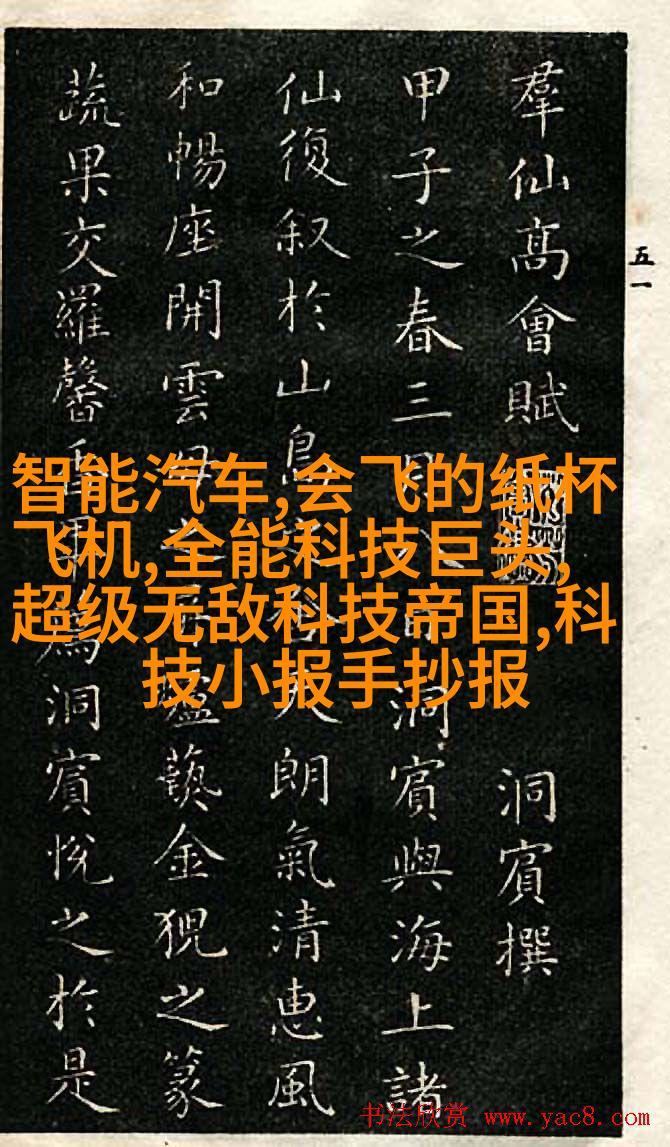 羣仙髙會賦
洞賓撰
甲子之春三月日洞賓與海上諸
仙復叙於山島天朗氣清惠風
和暢座開雲母之藝金猊之篆
蔬果交羅馨為洞賓悅之於是
五一
智能汽车,会飞的纸杯
飞机,全能科技巨头,
超级无敌科技帝国,科
技小报手抄报
书法欣赏 www.yac8.com